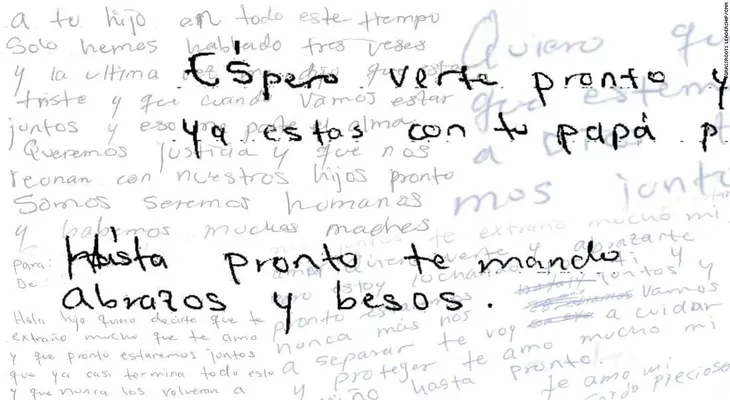 a tu hijo en todo este tiempo
Solo hemos hablado tres veses
y la ultima
triste y que cuando vamos estar
juntos y eso me parte y alma
Queremos justicia y que nos
reonan con nuestros hijos pronto
Somos seremos humanas
y habemos muchas madres
Para:
De:
Quiero que
que estem
a
mos junto
Espero verte pronto y
ya estas con tu papá p
Hasta pronto te mando
abrazos y besos.
Hola hijo quiero decirte que te
extraño mucho que te amo
y que pronto estaremos juntos
que ya casi termina todo esto
y que nunca los volveran a
te extraño mucho mi
verte y abrazarte
estoy luchando y
pronto juntos y
nunca más nos vamos
a separar te voy a cuidar
y proteger te amo mucho mi
niño hasta pronto.
te amo mi
gordo precioso
GRASSROOTS LEADERSHIP/CNN